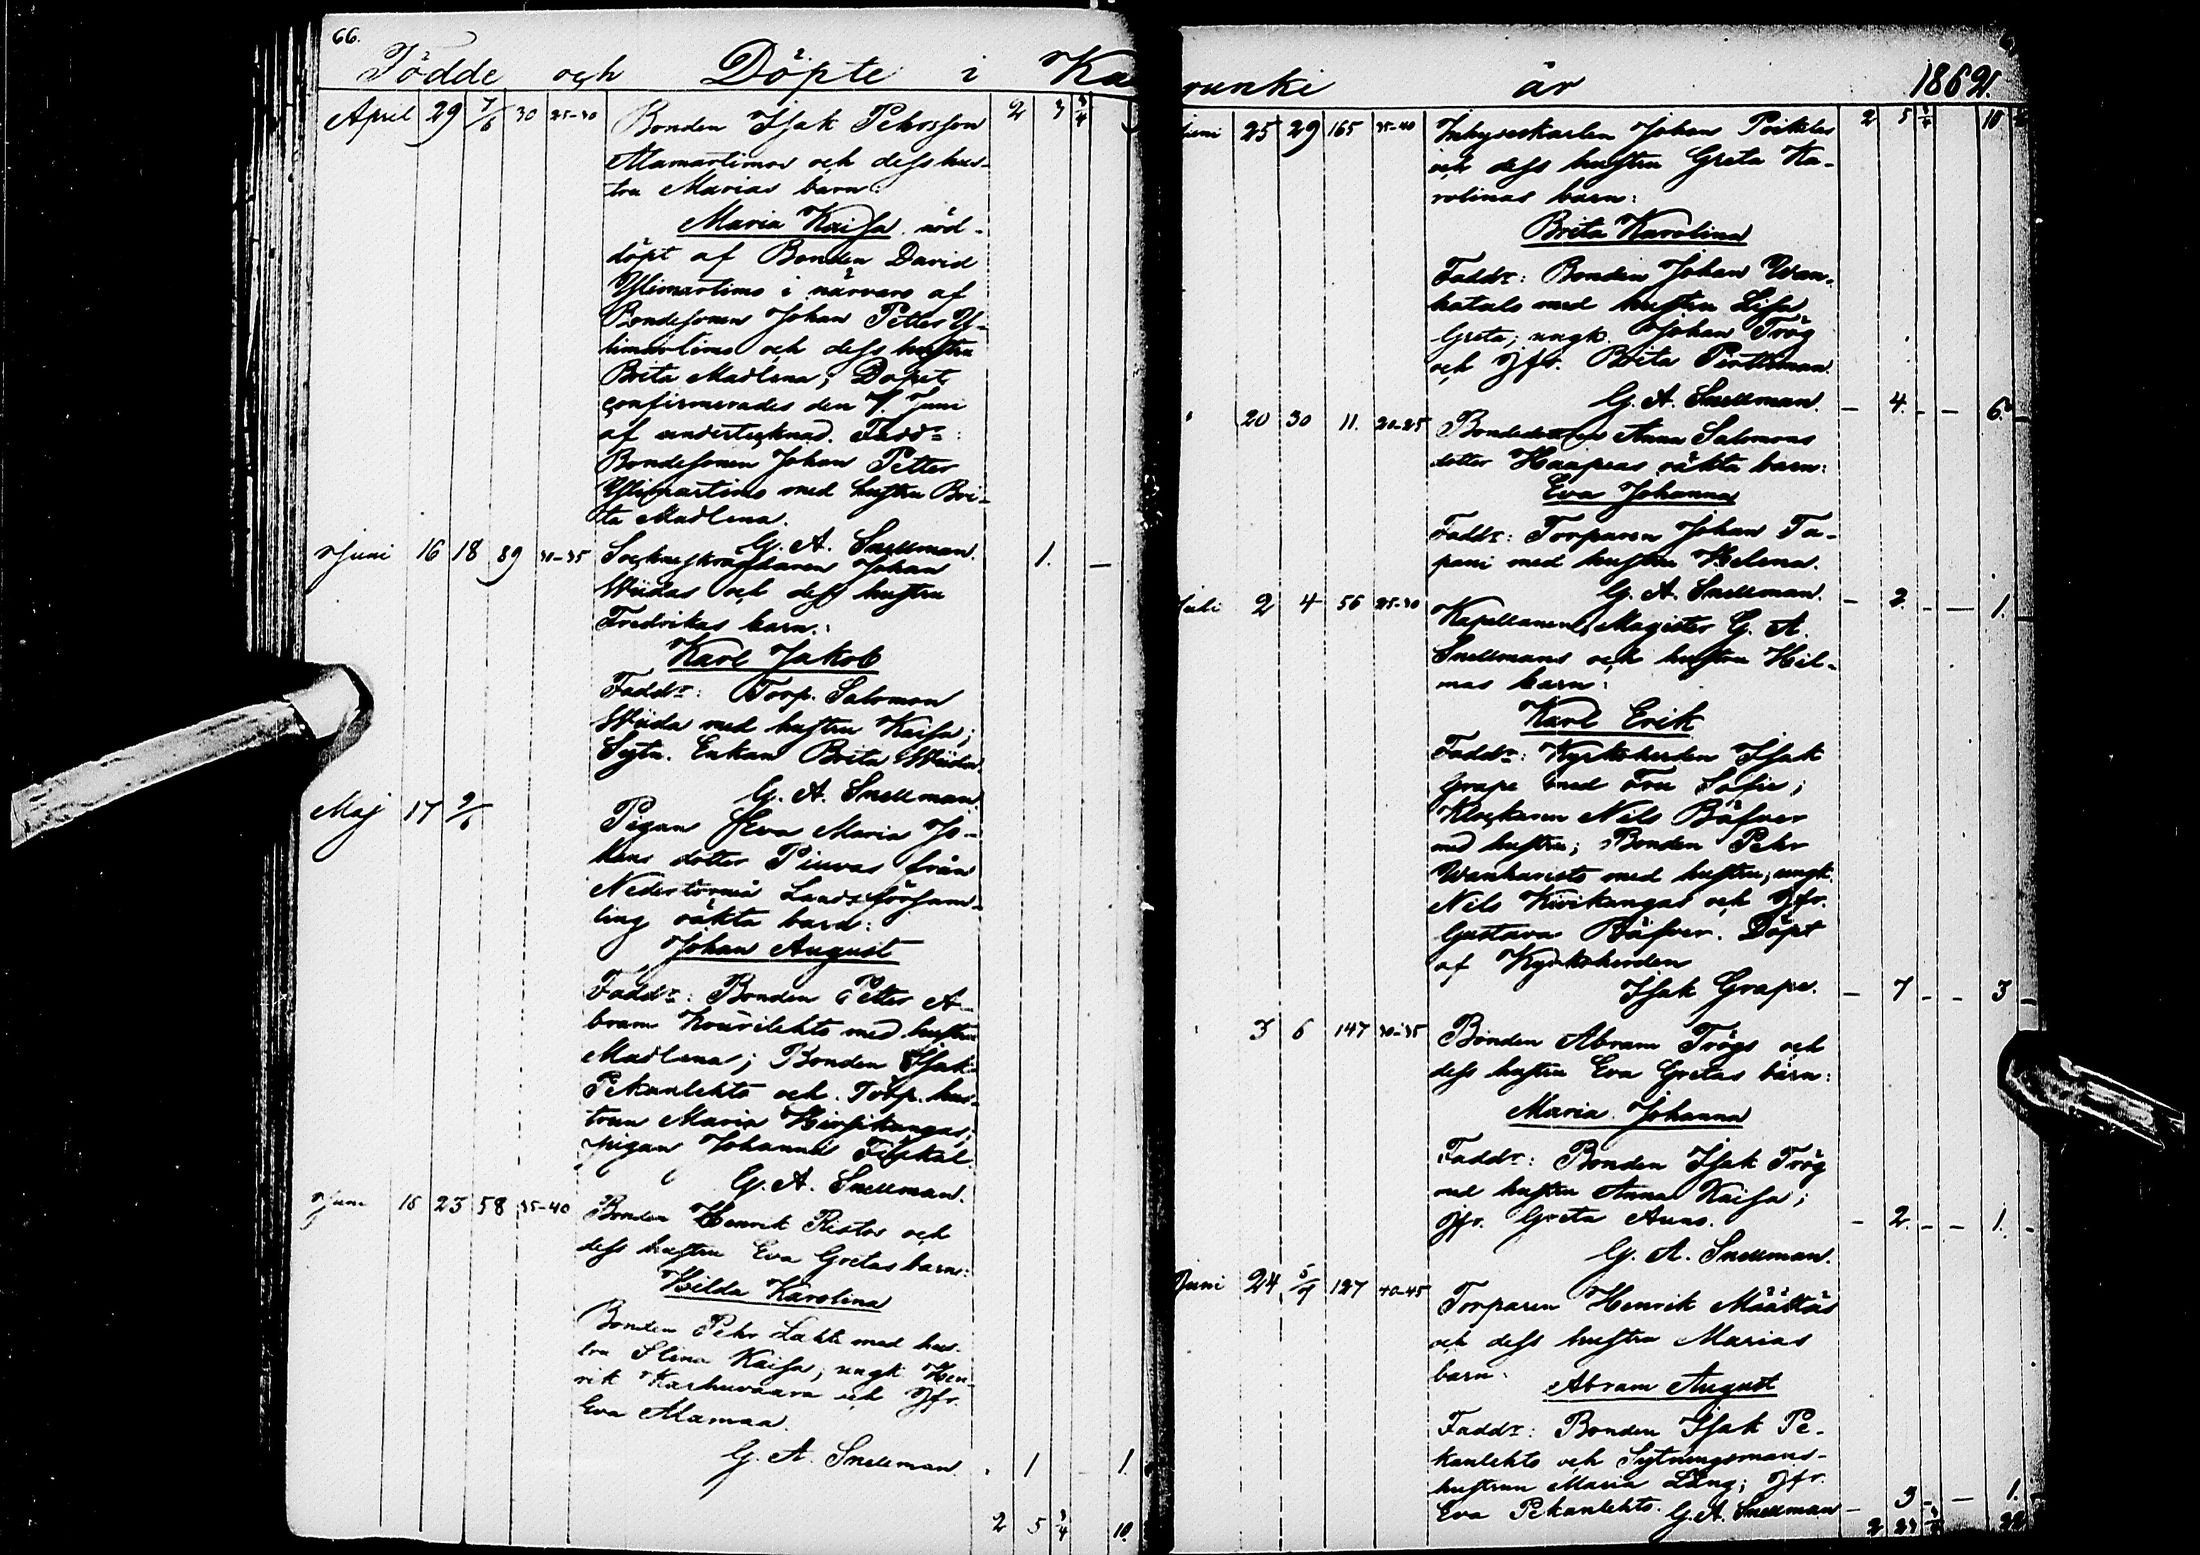 66.
Födde och Döpte i Ka
April 29 7/6 30 25-30 Bonden Isak Pehrsson 2 3 3/4
Alamartimos och dess hus-
tru Marias barn:
Maria Kaisa nöd-
döpt af Bonden David
Ylimartimo i närvaro af
Bondesonen Johan Petter Y-
limartimo och dess hustru
Brita Madlena; Dopet
confirmerades den 7. Juni
af undertecknad. Faddr:
Bondesonen Johan Petter
Ylimartimo med hustru Bri-
ta Madlena.
G. A. Snellman.
Juni 16 18 89 30-35 Sockneskräddaren Johan 1. —
Wiidas och dess hustru
Fredrikas barn:
Karl Jakob
Faddr: Torp. Salomon
Wiida med hustru Kaisa;
Sytn. Enkan Brita Wiida.
G. A. Snellman.
Maj 17 9/6 Pigan Eva Maria Jo-
hans dotter Piuvas från
Nedertorneå Landsförsam-
ling oäkta barn:
Johan August
Faddr: Bonden Petter A-
bram Kourilehto med hustru
Madlena; Bonden Isak
Pekanlehto och Torp. hus-
trun Maria Hirsikangas;
pigan Johanna Fiskal.
G. A. Snellman.
Juni 16 23 58 35-40 Bonden Henrik Ristos och
dess hustru Eva Gretas barn:
Hilda Karolina
Bonden Pehr Lahti med hus-
tru Stina Kaisa; ungk Hen-
rik Karhuvaara och Jfr.
Eva Alamaa.
G. A. Snellman. 1 1.
2 5 3/4 10.
runki år 1862.
Juni 25 29 165 35-40 Inhyseskarlen Johan Poikelas 2 5 3/4 10
och dess hustru Greta Ka-
rolinas barn:
Brita Karolina
Faddr: Bonden Johan Wan-
hatalo med hustru Lisa
Greta; ungk. Johan Trög
och Jfr. Brita Perttiman.
G. A. Snellman. — 4. — 6.
20 30 11. 20-25 Bondedottren Anna Salomons
dotter Haapeas oäkta barn:
Eva Johanna
Faddr: Torparen Johan Ta-
pani med hustru Helena.
G. A. Snellman. — 2. — 1.
Juli 2 4 56 25-30 Kapellanen, Magister G. A.
Snellmans och hustru Hil-
mas barn:
Karl Erik
Faddr: Kyrkoherden Isak
Grape med Fru Sofie;
Klockaren Nils Bäfver
med hustru; Bonden Pehr
Wanharisto med hustru; ungk.
Nils Kivikangas och Jfr.
Gustava Bäfver. Döpt
af Kyrkoherden
Isak Grape. — 7 — 3
3 6 147 30-35 Bonden Abram Trögs och
dess hustru Eva Gretas barn:
Maria Johanna
Faddr: Bonden Isak Trög
med hustru Anna Kaisa;
Jfr. Greta Auno. — 2 — 1.
G. A. Snellman.
Juni 24 5/7 127 40-45 Torparen Henrik Määttäs
och dess hustru Marias
barn:
Abram August
Faddr: Bonden Isak Pe-
kanlehto och Sytningsmans-
hustrun Maria Lång; Jfr.
Eva Pekanlehto. G. A. Snellman — 3 — 1.
2 23 3/4 22